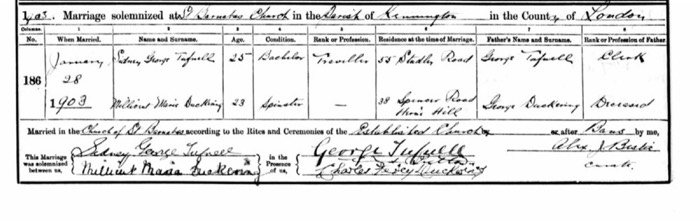 1903. Marriage solemnized at St Barnabas Church in the Parish of Kennington in the County of London
Columns. 1 2 3 4 5 6 7 8
No. When Married. Name and Surname. Age. Condition. Rank or Profession. Residence at the time of Marriage. Father's Name and Surname. Rank or Profession of Father
186 January 28 1903
Sidney George Tufnell 25 Bachelor Traveller 55 Road George Tufnell Clerk
Millicent Maria Duckering 23 Spinster — 38 Spencer Road Herne Hill George Duckering Deceased
Married in the Church of St Barnabas according to the Rites and Ceremonies of the Established Church by or after Banns by me,
This Marriage was solemnized between us, Sidney George Tufnell in the Presence of us, George Tufnell Alex J
Millicent Maria Duckering Charles Percy Duckering Curate.